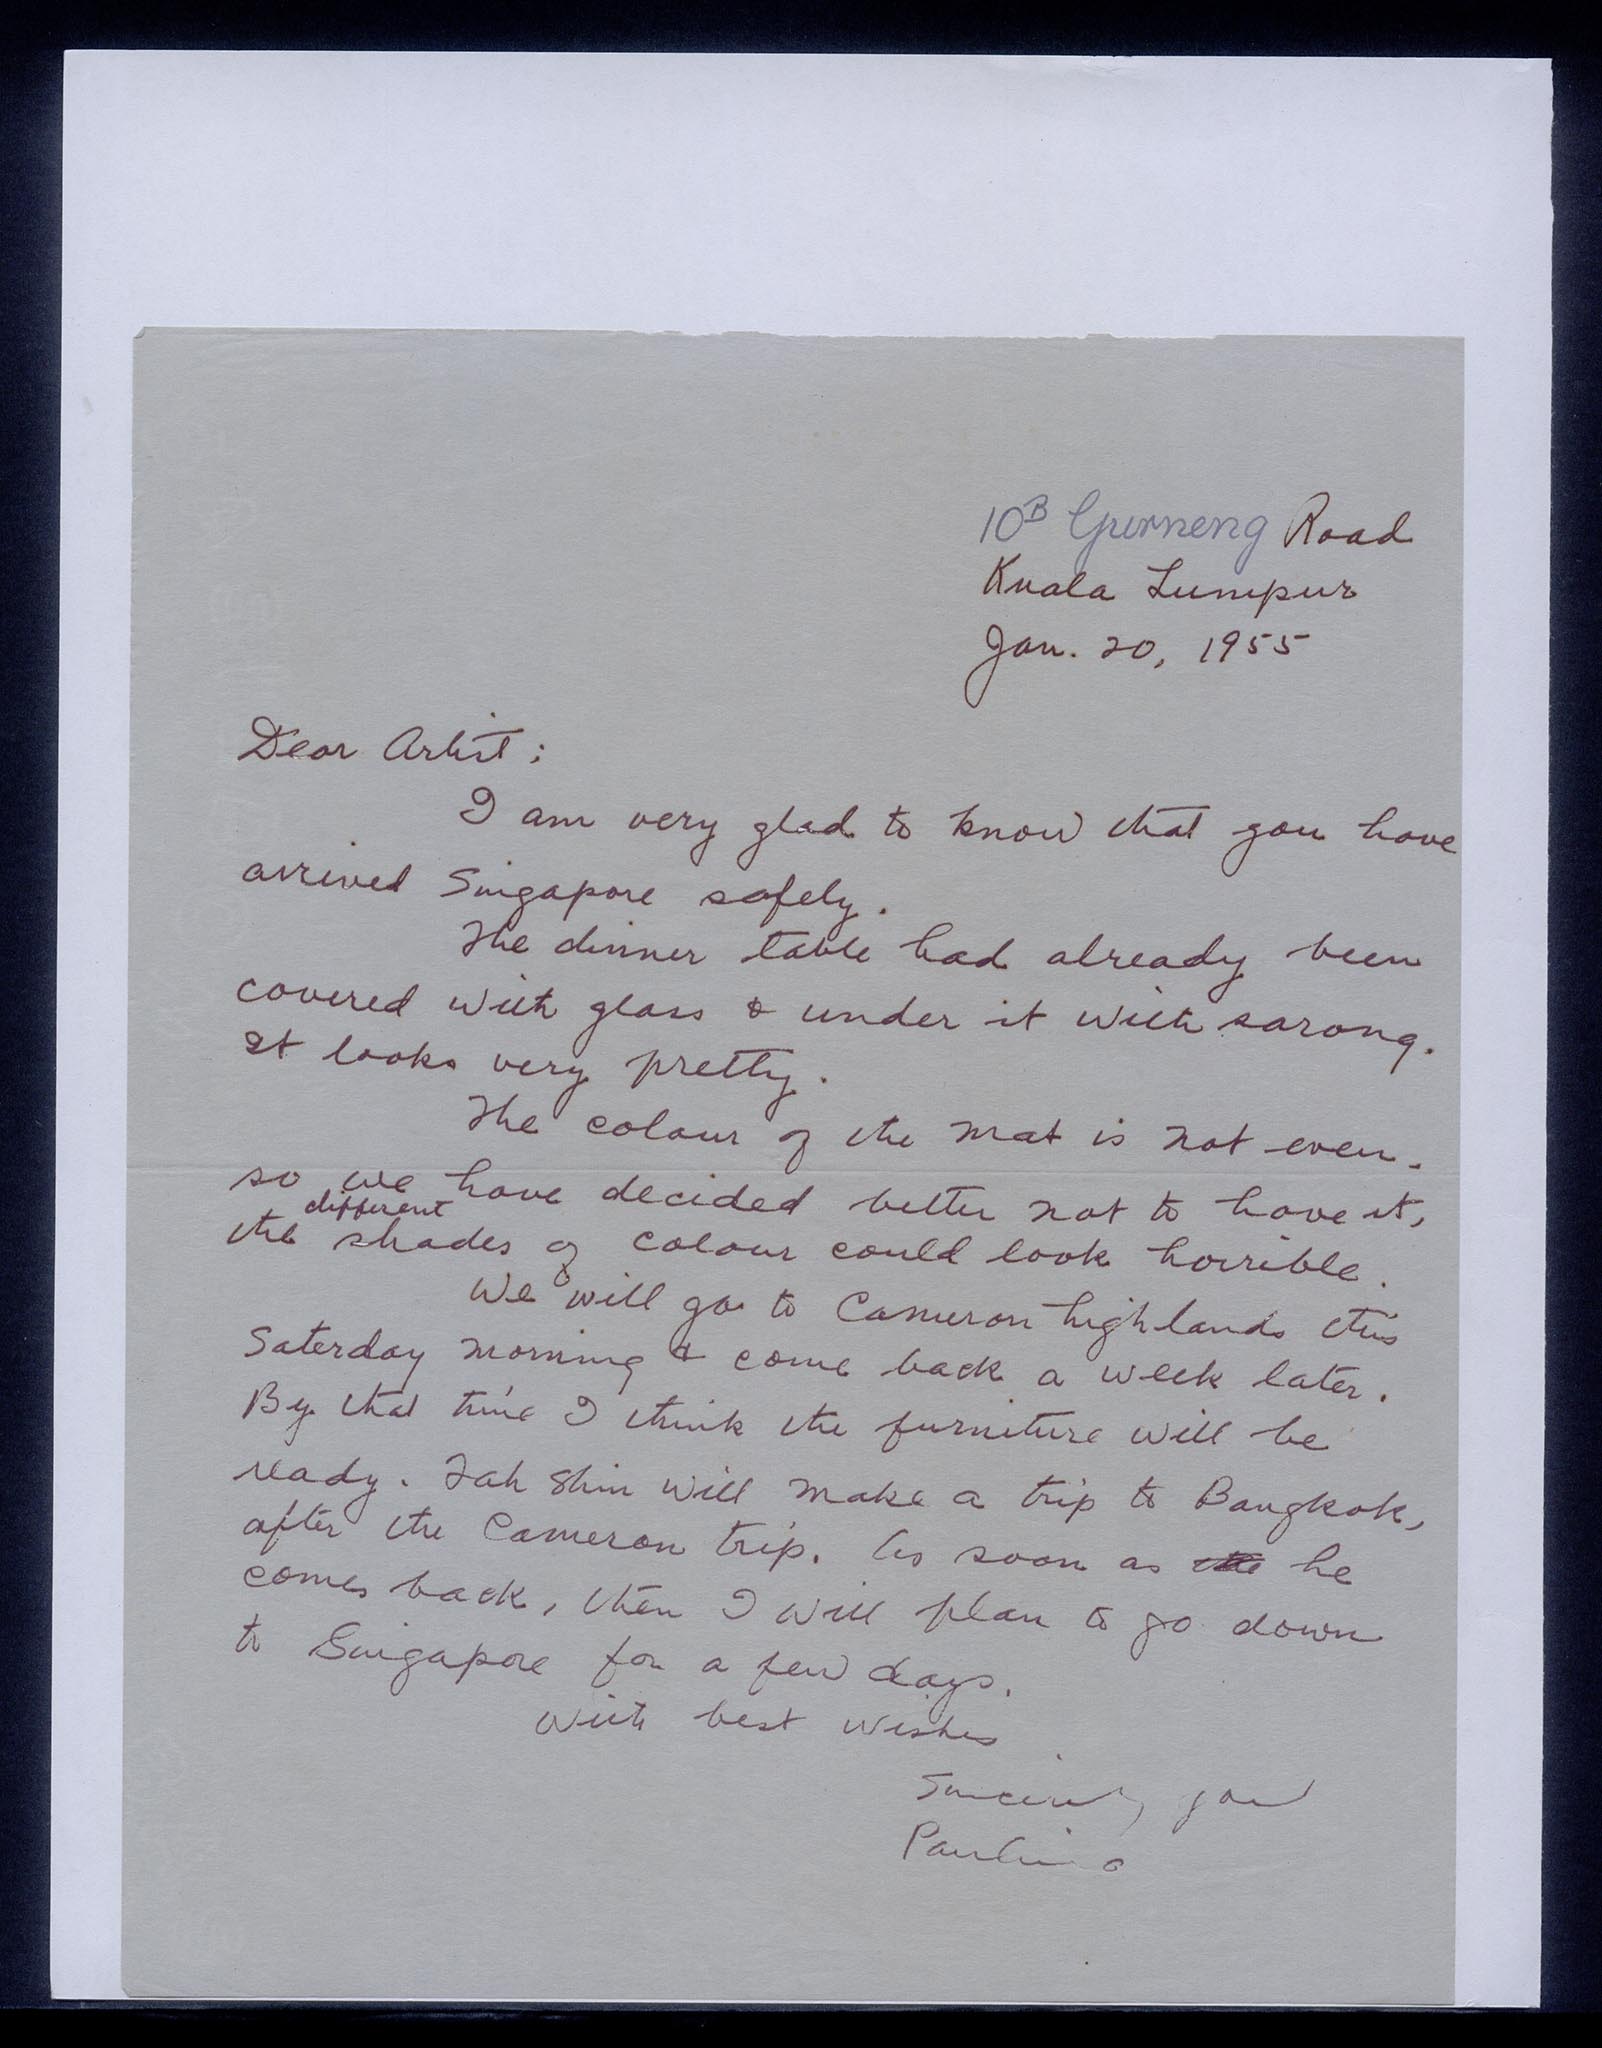 10B Gurneng Road
Kuala Lumpur
Jan. 20, 1955
Dear Artist:
I am very glad to know that you have
arrived Singapore safely.
The dinner table had already been
covered with glass & under it with sarong.
It looks very pretty.
The colour of the mat is not even.
so we have decided better not to have it,
different
the shades of colour could look horrible.
We will go to Cameron highlands this
Saterday morning & come back a week later.
By that time I think the furniture will be
ready. Tah Shin will make a trip to Bangkok,
after the Cameron trip. As soon as he
comes back, then I will plan to go down
to Singapore for a few days.
With best wishes
Sincerely your
Pauline